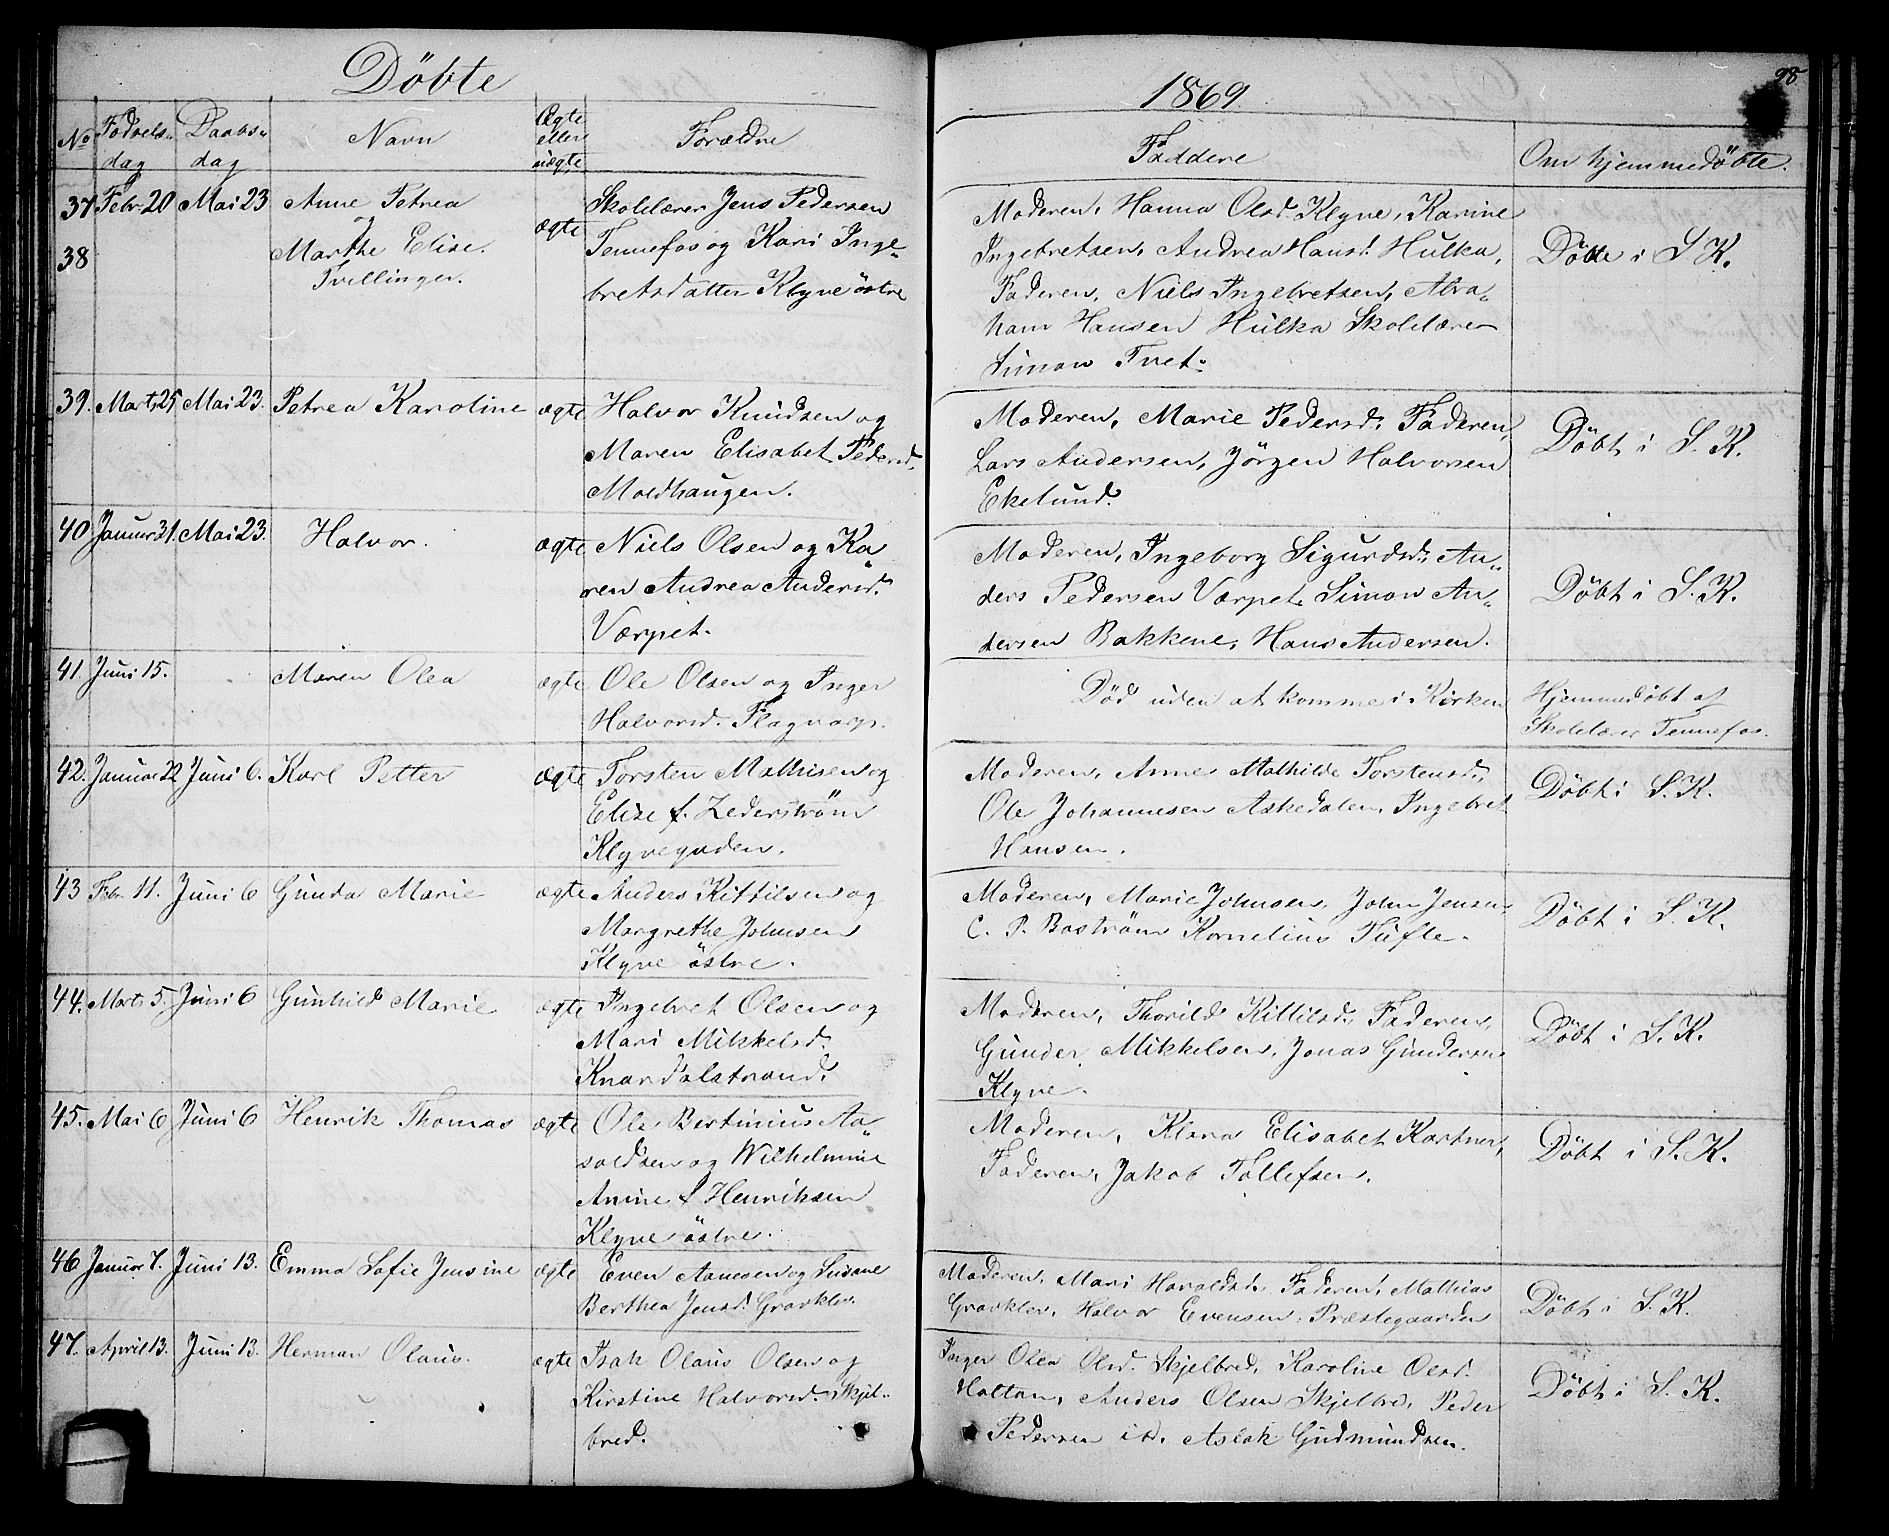 Döbte
No
Födsels-
dag
Daabs-
dag
Navn
Ægte
eller
uægte
Forældre
37
38
Febr 20
Mai 23
Anne Petrea
og
Marthe Elise.
Tvillinger.
ægte
Skolelærer Jens Pedersen
Tennefos og Kari Inge-
bretsdatter Klyve östre
39.
Marts 25
Mai 23.
Petrea Karoline
ægte
Halvor Knudsen og
Maren Elisabet Pedersd.
Moldhaugen.
40
Januar 31.
Mai 23.
Halvor.
ægte
Niels Olsen og Ka-
ren Andrea Andersd.
Værpet.
41.
Juni 15.
Maren Olea
ægte
Ole Olsen og Inger
Halvorsd. Flagvarp.
42.
Januar 22
Juni 6.
Karl Petter
ægte
Torsten Mathisen og
Elise f. Zederström
Klyvegaden.
43
Febr 11.
Juni 6
Gunda Marie
ægte
Anders Kittilsen og
Margrethe Johnsen
Klyve östre.
44.
Marts 5.
Juni 6
Gunhild Marie
ægte
Ingebret Olsen og
Mari Mikkelsd.
Knardalstrand.
45.
Mai 6
Juni 6
Henrik Thomas
ægte
Ole Bertinius Aa-
soldsen og Wilhelmine
Anine f Henriksen
Klyve östre.
46
Januar 7.
Juni 13.
Emma Sofie Jensine
ægte
Even Aanesen og Susane
Berthea Jensd. Gravklev.
47.
April 13.
Juni 13.
Herman Olaus.
ægte
Isak Olaus Olsen og
Kirstine Halvorsd. Skjel-
bred.
1869
98
Faddere
Om hjemmedöbte.
Moderen, Hanna Olsd. Klyve, Karine
Ingebretsen, Andrea Hansd. Hulka,
Faderen, Niels Ingebretsen, Abra-
ham Hansen Hulka Skolelærer
Simon Tvet.
Döbte i S. K.
Moderen, Marie Pedersd. Faderen,
Lars Andersen, Jörgen Halvorsen
Ekelund.
Döbt i S. K.
Moderen, Ingeborg Sigurdsd. An-
ders Pedersen Værpet. Simon An-
dersen Bakkene, Hans Andersen.
Döbt i S. K.
Död uden at komme i Kirken
Hjemmedöbt af
Skolelærer Tennefos.
Moderen, Anne Mathilde Torstensd.,
Ole Johannesen Askedalen, Ingebret
Hansen.
Döbt i S. K.
Moderen, Marie Johnsen, John Jensen,
C. P. Boström Kornelius Tufte.
Döbt i S. K.
Moderen, Thorild Kittilsd., Faderen,
Gunder Mikkelsen, Jonas Gundersen
Klyve.
Döbt i S. K.
Moderen, Klara Elisabet Kartner,
Faderen, Jakob Tollefsen.
Döbt i S. K.
Moderen, Mari Haraldsd., Faderen, Mathias
Gravklev, Halvor Evensen Præstegaarden
Döbt i S. K.
Inger Olea Olsd. Skjelbred, Karoline Olsd.
Holtan, Anders Olsen Skjelbred, Peder
Pedersen ibd. Aslak Gudmundsen.
Döbt i S. K.